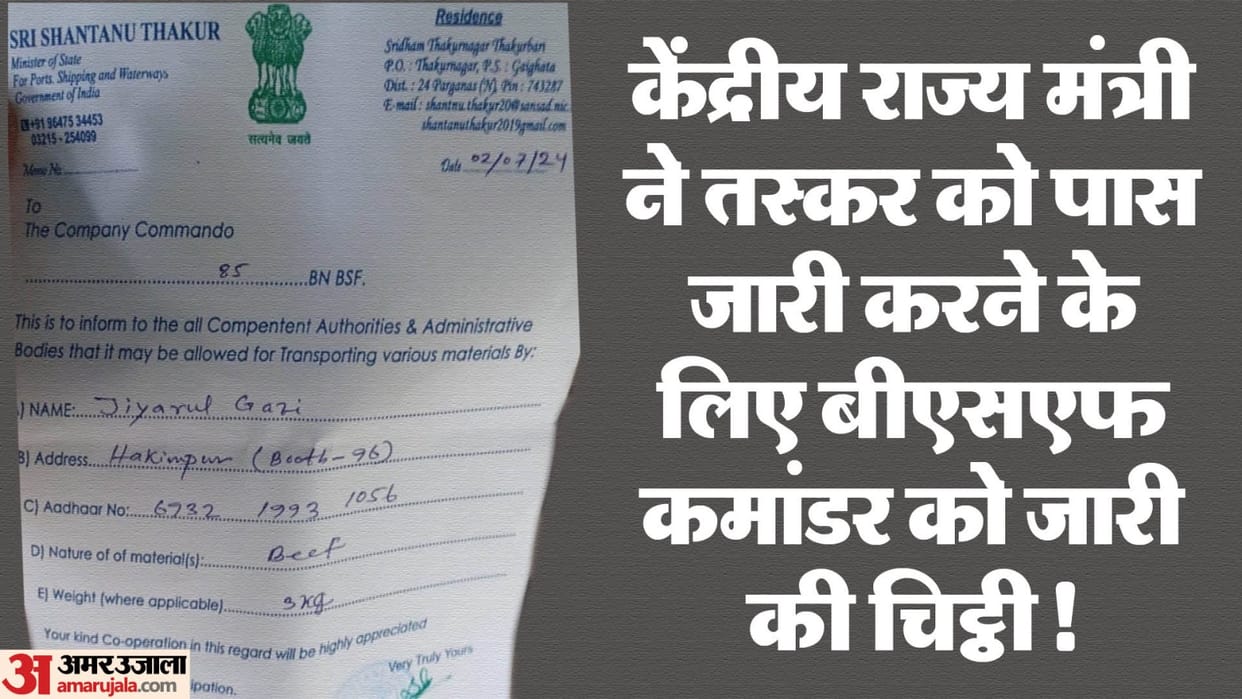 SRI SHANTANU THAKUR
Minister of State
For Ports, Shipping and Waterways
Government of India
+91 96475 34453
03215 - 254099
Memo No.
सत्यमेव जयते
Residence
Sridham Thakurnagar Thakurbari
P.O. : Thakurnagar, P.S. : Gaighata
Dist. : 24 Parganas (N), Pin : 743287
E-mail : shantnu.thakur20@sansad.nic.
shantanuthakur2019gmail.com
Date 02/07/24
To
The Company Commando
85 BN BSF.
This is to inform to the all Compentent Authorities & Administrative
Bodies that it may be allowed for Transporting various materials By:
) NAME: Jiyarul Gazi
B) Address Hakimpur (Booth-96)
C) Aadhaar No: 6732 1993 1056
D) Nature of of material(s): Beef
E) Weight (where applicable) 3 kg
Your kind Co-operation in this regard will be highly appreciated
Very Truly Yours
ipation.
केंद्रीय राज्य मंत्री
ने तस्कर को पास
जारी करने के
लिए बीएसएफ
कमांडर को जारी
की चिट्ठी !
अ अमर उजाला
amarujala.com